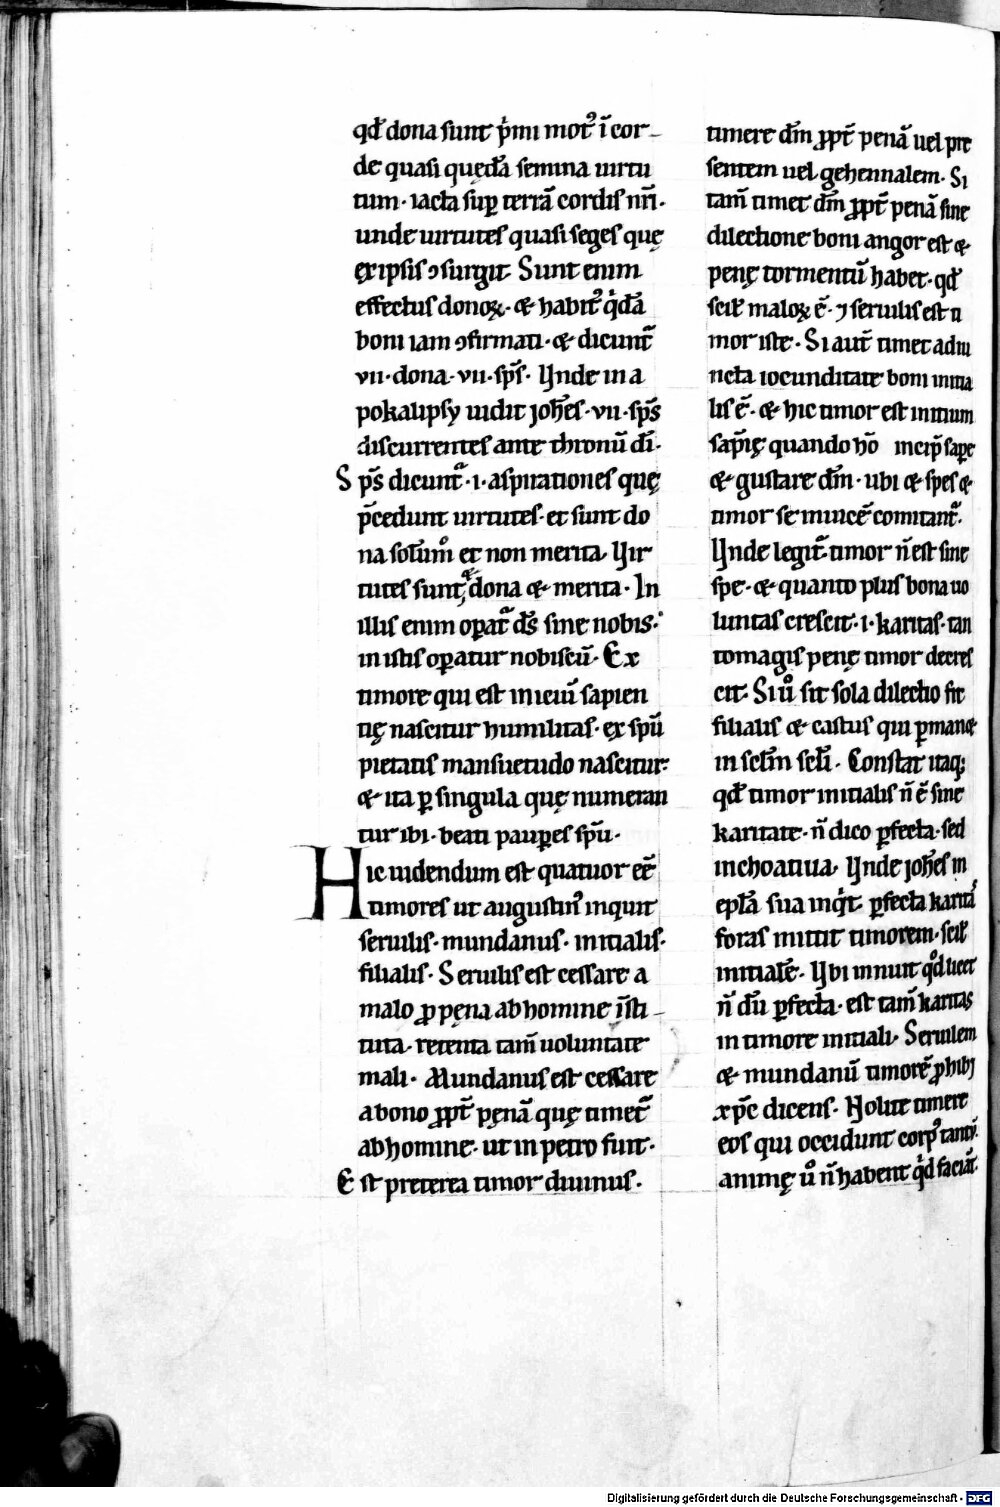 qđ dona sunt p̄mi motꝰ ī cor
de quasi quędā semina uirtu
tum · iacta suꝑ terrā cordis nr̄i ·
unde uirtutes quasi seges quę
ex ipsis ꝯsurgit. Sunt enim
effectus donoꝝ · & habitꝰ q̇dā
boni iam ꝯfirmati · & dicunt᷑
vii · dona · vii · sp̄s · Unde in a
pokalipsy uidit joh̄es · vii · sp̄s
discurrentes ante thronū dī ·
Sp̄s dicunt᷑ · i · aspirationes quę
p̄cedunt uirtutes · et sunt do
na et non merita · Uir
tutes sunt & dona & merita · In
illis enim oꝑat᷑ ds̄ sine nobis ·
in istis oꝑatur nobiscū · Ex
timore qui est iniciū sapien
tię nascitur humilitas · ex spū
pietatis mansuetudo nascitur ·
& ita ꝑ singula quę numeran
tur ibi · beati pauꝑes spū ·
Hic uidendum est quatuor eē
timores ut augustinꝰ inquit
seruilis · mundanus · initialis ·
filialis · Seruilis est cessare a
malo ꝓ pęna ab homine īsti
tuta · retenta tam̄ uoluntate
mali · Mundanus est cessare
a bono ꝓpt̄ pęnā quę timet᷑
ab homine · ut in petro fuit ·
Est preterea timor diuinus ·
timere dm̄ ꝓpt̄ penā uel pre
sentem uel gehennalem · Si
tam̄ timet dm̄ ꝓpt̄ penā sine
dilectione boni angor est &
penę tormentū habet · qđ
scil̄ maloꝝ ē · ⁊ seruilis est ti
mor iste · Si aut̄ timet adiu
ncta iocunditate boni initia
lis ē · & hic timor est initium
sap̄ię quando hō incip̄ saꝑe
& gustare dm̄ · ubi & spes &
timor se inuicē comitant᷑ ·
Unde legit᷑ timor n̄ est sine
spe · & quanto plus bona uo
luntas crescit · i · karitas · tan
to magis penę timor decres
cit · Si uͦ sit sola dilectio fit
filialis & castus qui ꝑman&
in sclm̄ scli · Constat itaqꝫ
qđ timor initialis n̄ ē sine
karitate · n̄ dico ꝑfecta · sed
inchoatiua · Unde joh̄es in
epl̄a sua inq̇t · ꝑfecta karita
foras mittit timorem · scil̄
initialē · Ubi innuit qͦd licet
n̄ dū ꝑfecta · est tam̄ karitas
in timore initiali · Seruilem
& mundanū timorē ꝓhib;
xp̄c dicens · Nolite timere
eos qui occidunt corpꝰ tantū ·
animę uͦ n̄ habent q̇d faciāt ·
Digitalisierung gefördert durch die Deutsche Forschungsgemeinschaft · DFG